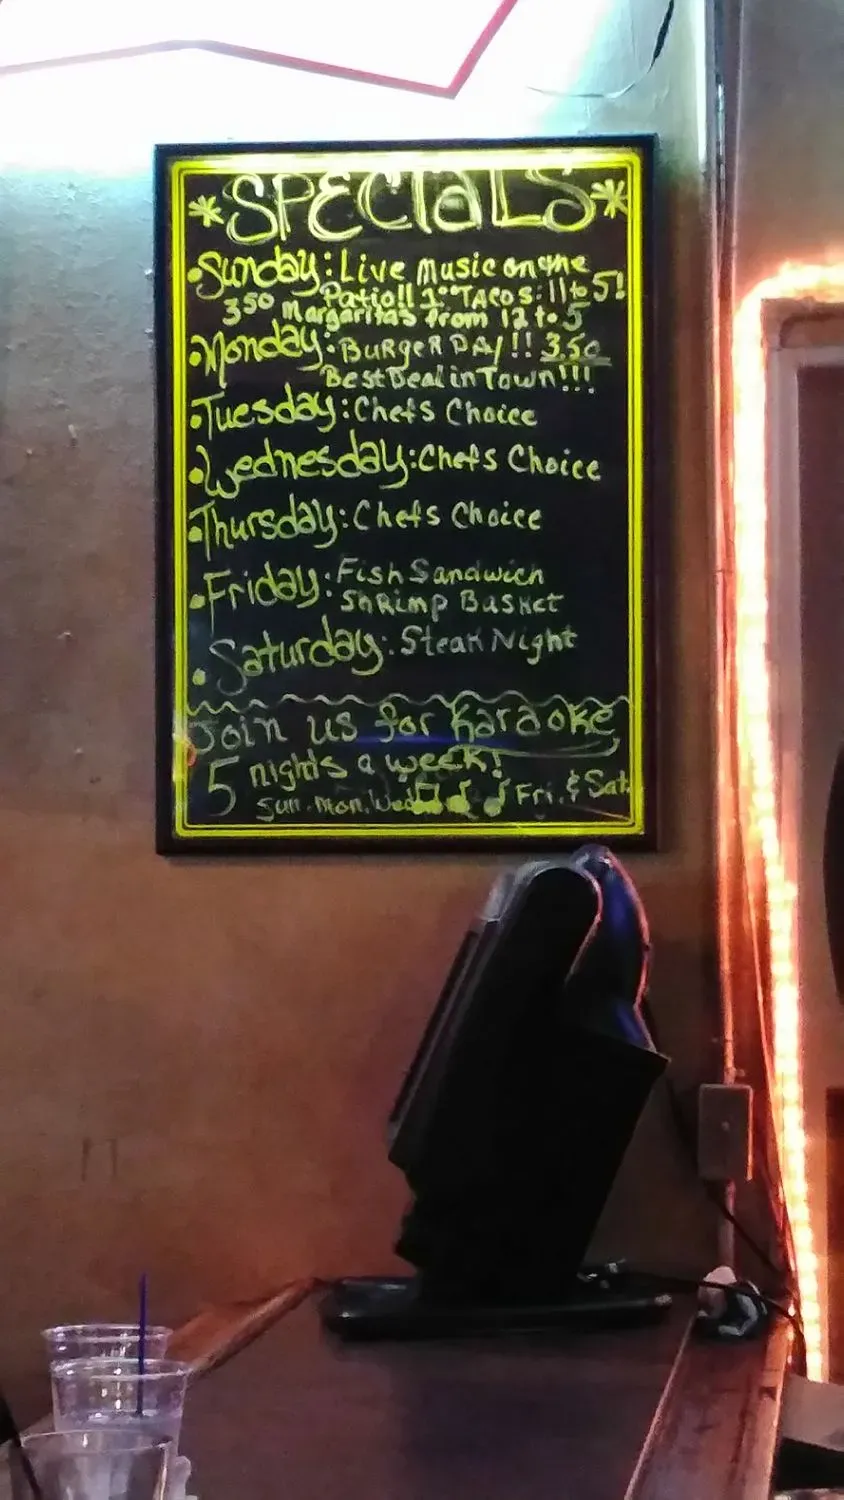 *SPECIALS*
•Sunday: Live music on the
Patio!! 1⁰⁰ TACOS: 11 to 5!
3⁵⁰ Margaritas from 12 to 5
•Monday: BURGER DAY!! 3.50
Best Deal in Town!!!
•Tuesday: Chefs Choice
•Wednesday: Chefs Choice
•Thursday: Chefs Choice
•Friday: Fish Sandwich
Shrimp Basket
•Saturday: Steak Night
Join us for Karaoke
5 nights a week!
Sun. Mon. Wed Fri. & Sat.